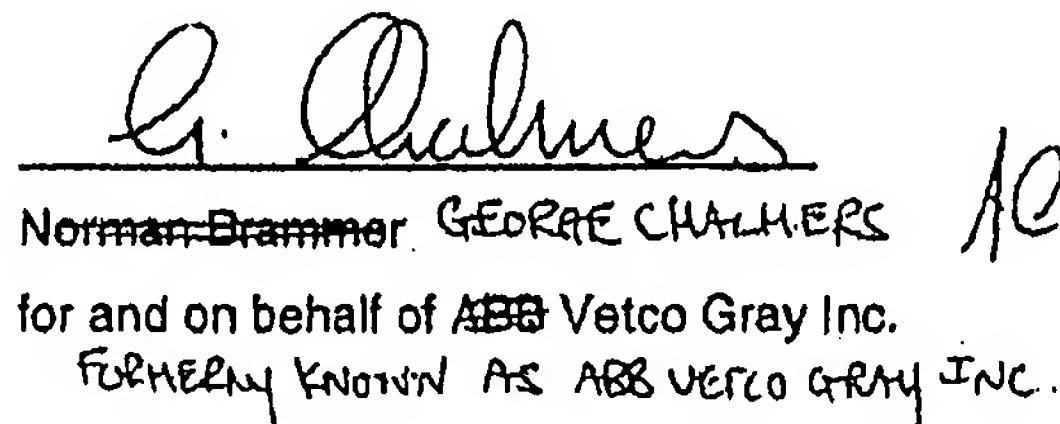 G. Chalmers
Norman Brammer GEORGE CHALMERS AC
for and on behalf of ABB Vetco Gray Inc.
FORMERLY KNOWN AS ABB VETCO GRAY INC.